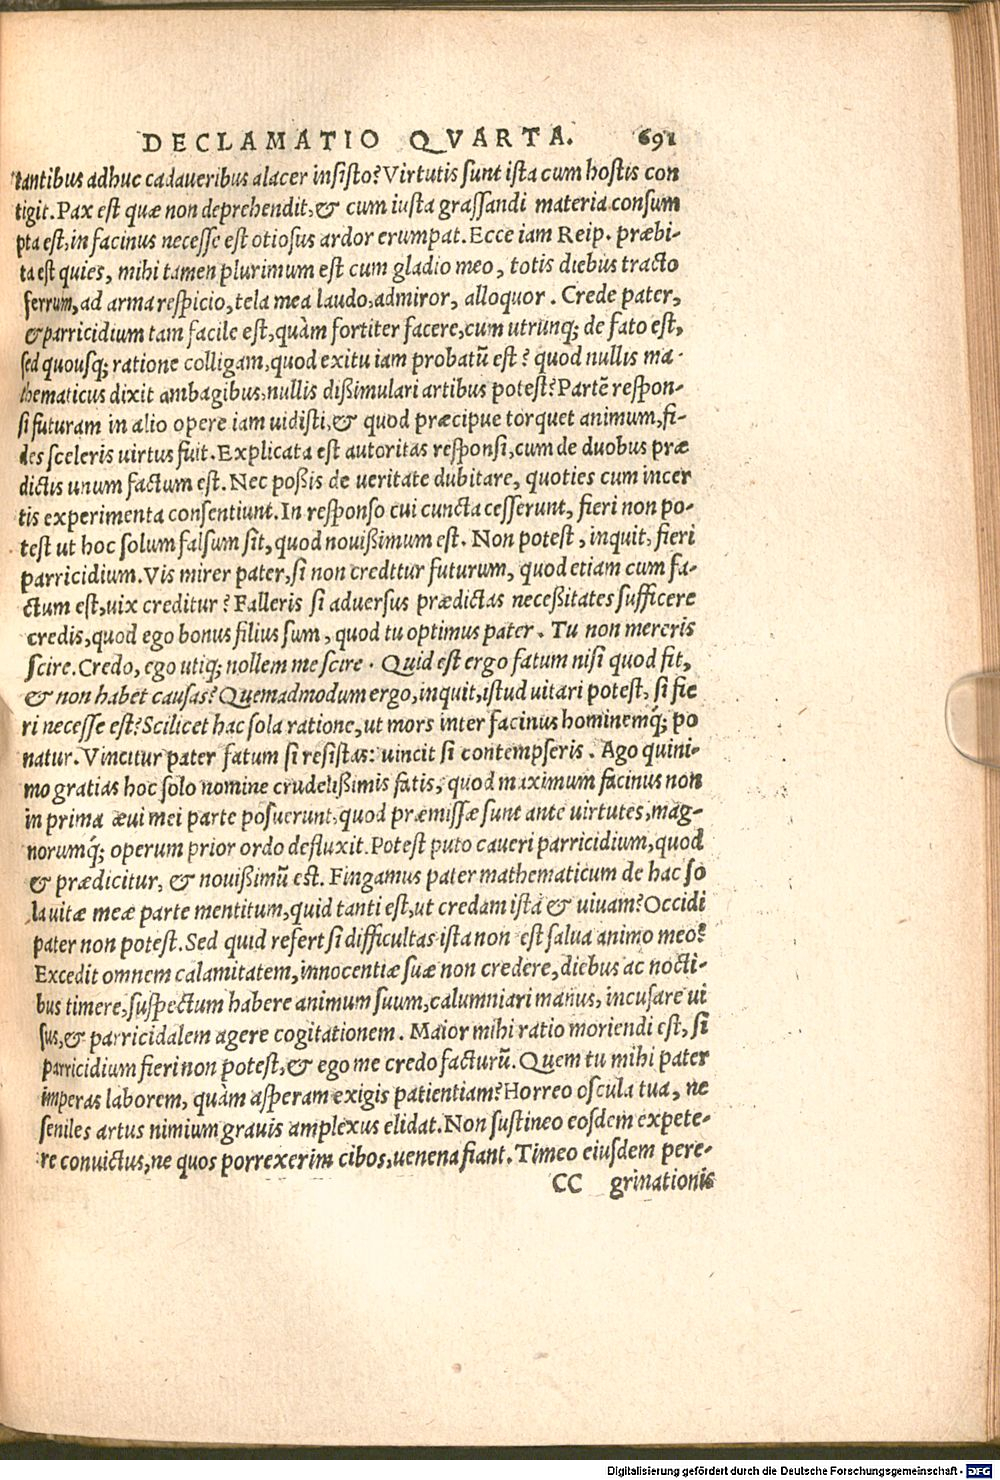 DECLAMATIO QVARTA. 691
tantibus adhuc cadaueribus alacer insisto? Virtutis sunt ista cum hostis con
tigit. Pax est quæ non deprehendit, & cum iusta grassandi materia consum
pta est, in facinus necesse est otiosus ardor erumpat. Ecce iam Reip. præbi-
ta est quies, mihi tamen plurimum est cum gladio meo, totis diebus tracto
ferrum, ad arma respicio, tela mea laudo, admiror, alloquor. Crede pater,
& parricidium tam facile est, quàm fortiter facere, cum utrunq; de fato est,
sed quousq; ratione colligam, quod exitu iam probatũ est? quod nullis ma-
thematicus dixit ambagibus, nullis dißimulari artibus potest? Partẽ respon-
si futuram in alio opere iam uidisti, & quod præcipue torquet animum, fi-
des sceleris uirtus fuit. Explicata est autoritas responsi, cum de duobus præ
dictis unum factum est. Nec poßis de ueritate dubitare, quoties cum incer
tis experimenta consentiunt. In responso cui cuncta cesserunt, fieri non po-
test ut hoc solum falsum sit, quod nouißimum est. Non potest, inquit, fieri
parricidium. Vis mirer pater, si non credttur futurum, quod etiam cum fa-
ctum est, uix creditur? Falleris si aduersus prædictas neceßitates sufficere
credis, quod ego bonus filius sum, quod tu optimus pater. Tu non mereris
scire. Credo, ego utiq; nollem me scire. Quid est ergo fatum nisi quod fit,
& non habet causas? Quemadmodum ergo, inquit, istud uitari potest, si fie
ri necesse est? Scilicet hac sola ratione, ut mors inter facinus hominemq́; po
natur. Vincitur pater fatum si resistas: uincit si contempseris. Ago quini-
mo gratias hoc solo nomine crudelißimis fatis, quod maximum facinus non
in prima æui mei parte posuerunt, quod præmissæ sunt ante uirtutes, mag-
norumq́; operum prior ordo defluxit. Potest puto caueri parricidium, quod
& prædicitur, & nouißimũ est. Fingamus pater mathematicum de hac so
la uitæ meæ parte mentitum, quid tanti est, ut credam ista & uiuam? Occidi
pater non potest. Sed quid refert si difficultas ista non est salua animo meo?
Excedit omnem calamitatem, innocentiæ suæ non credere, diebus ac nocti-
bus timere, suspectum habere animum suum, calumniari manus, incusare ui
sus, & parricidalem agere cogitationem. Maior mihi ratio moriendi est, si
parricidium fieri non potest, & ego me credo facturũ. Quem tu mihi pater
imperas laborem, quàm asperam exigis patientiam? Horreo oscula tua, ne
seniles artus nimium grauis amplexus elidat. Non sustineo eosdem expete-
re conuictus, ne quos porrexerim cibos, uenena fiant. Timeo eiusdem pere-
CC grinationis
Digitalisierung gefördert durch die Deutsche Forschungsgemeinschaft - DFG